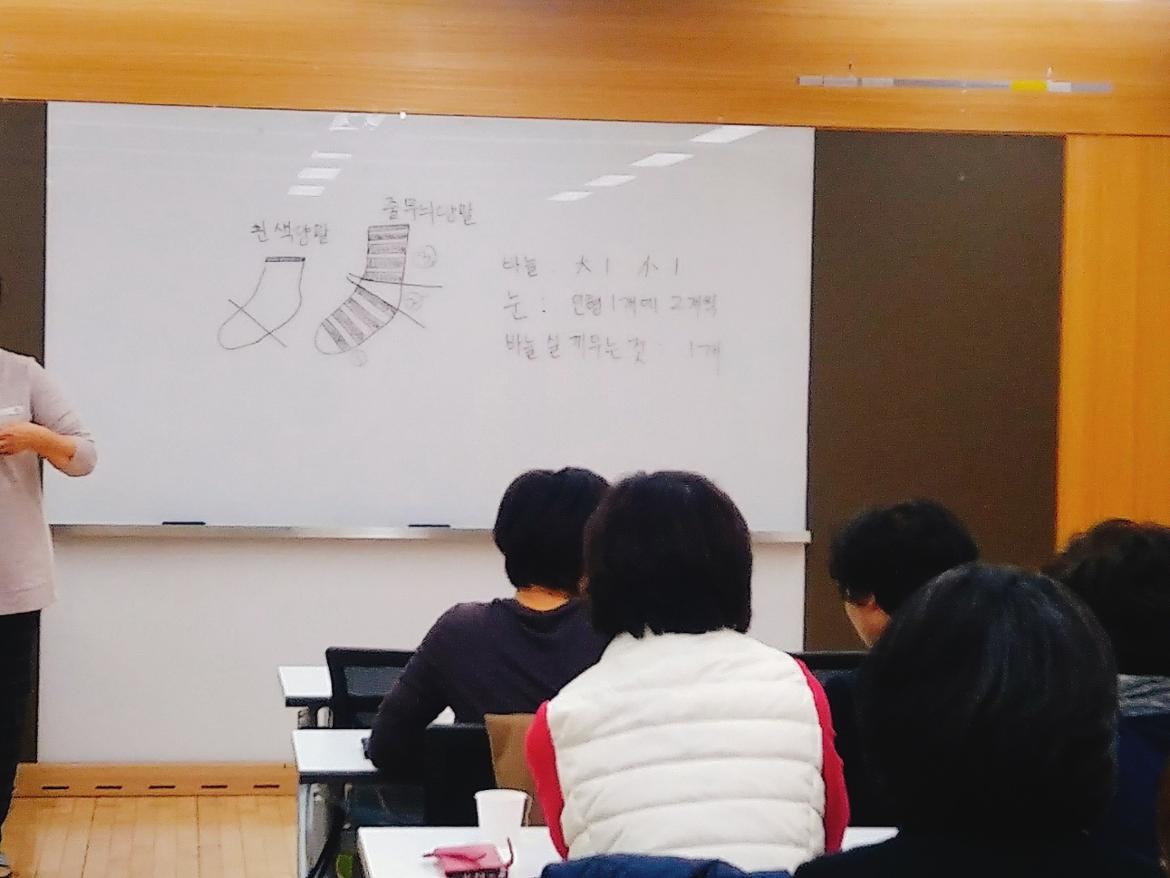 흰색양말
줄무늬양말
바늘 : 大 1 小 1
눈 : 인형 1개에 2개씩
바늘 실 끼우는 것 : 1개